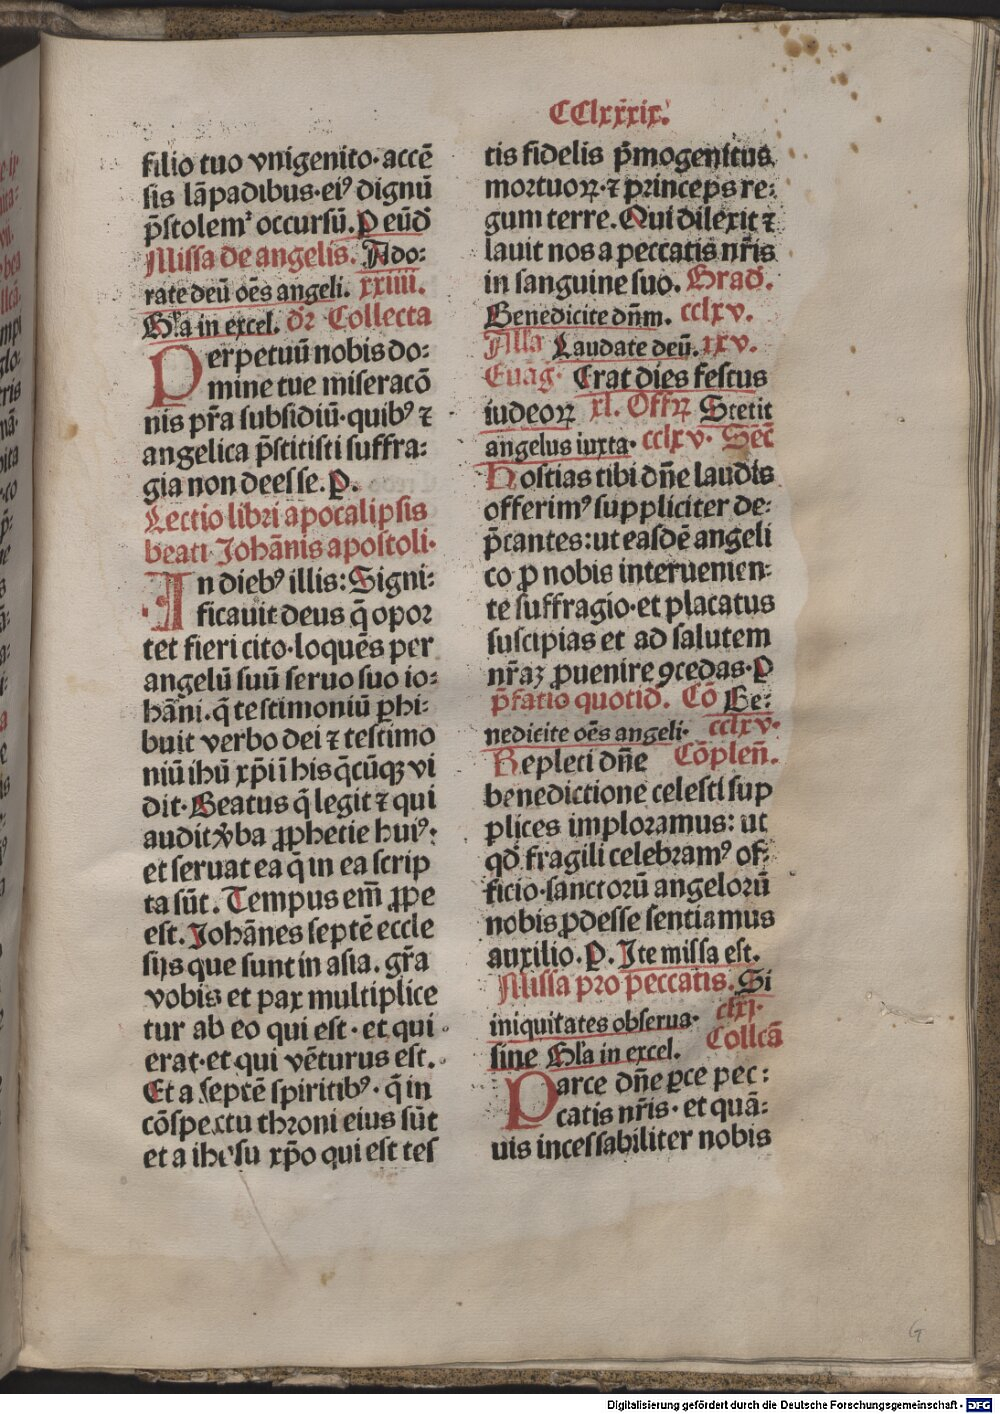 CClxxxix.
filio tuo vnigenito· accē
sis lāpadibus· eiꝰ dignū
p̄stolemꝰ occursū. P eūd̄
Missa de angelis. Ado:
rate deū oēs angeli. xxiiii.
Gl'a in excel. dr̄ Collecta
Perpetuū nobis do:
mine tue miseracō
nis pr̄a subsidiū· quibꝰ ⁊
angelica p̄stitisti suffra:
gia non deesse. P.
Lectio libri apocalipsis
beati Johānis apostoli·
In diebꝰ illis: Signi:
ficauit deus q̄ opor
tet fieri cito· loquēs per
angelū suū seruo suo io:
hāni. q̄ testimoniū ꝑhi:
buit verbo dei ⁊ testimo
niū ihū xp̄i ī his q̄cūqꝫ vi
dit· Beatus q̄ legit ⁊ qui
audit v̄ba ꝓphetie huiꝰ:
et seruat ea q̄ in ea scrip
ta sūt. Tempus em̄ ꝓpe
est. Johānes septē eccle
sijs que sunt in asia. gr̄a
vobis et pax multiplice
tur ab eo qui est· et qui
erat· et qui vēturus est.
Et a septē spiritibꝰ· q̄ in
cōspectu throni eius sūt
et a ihesu xp̄o qui est tes
tis fidelis p̄mogenitus
mortuoꝝ· ⁊ princeps re:
gum terre. Qui dilexit ⁊
lauit nos a peccatis nr̄is
in sanguine suo. Grad̄.
Benedicite dn̄m. cclxv.
All'a Laudate deū. xxv.
Euāg· Erat dies festus
iudeoꝝ xl. Offꝝ Stetit
angelus iuxta· cclxv· Sēc̄
Hostias tibi dn̄e laudis
offerimꝰ suppliciter de:
p̄cantes: ut easdē angeli
co ꝓ nobis interuenien:
te suffragio· et placatus
suscipias et ad salutem
nr̄aꝫ ꝓuenire ꝯcedas· P
p̄fatio quotid̄. Cō Be:
nedicite oēs angeli· cclxv·
Repleti dn̄e Cōplen̄.
benedictione celesti sup
plices imploramus: ut
qd̄ fragili celebramꝰ of:
ficio· sanctorū angelorū
nobis ꝓdesse sentiamus
auxilio. P. Ite missa est.
Missa pro peccatis. Si
iniquitates obserua· clxj.
sine Gl'a in excel. Collcā
Parce dn̄e ꝑce pec:
catis nr̄is· et quā:
uis incessabiliter nobis
G
Digitalisierung gefördert durch die Deutsche Forschungsgemeinschaft - DFG